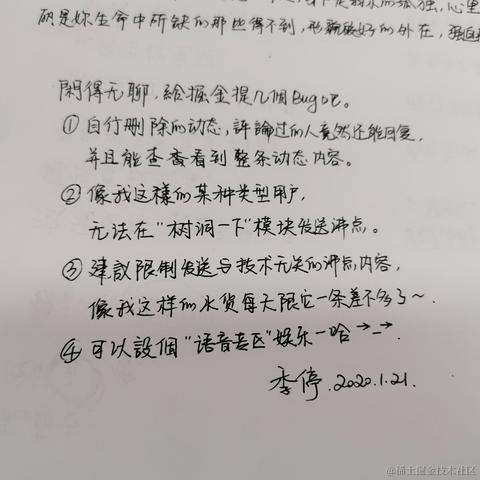 丽是妳生命中所缺的那些得不到,形貌姣好的外在,强自
閑得无聊,給掘金提几個Bug吧。
①自行删除的动态,評論过的人竟然还能回复,
并且能查看看到整条动态内容。
②像我这樣的某种类型用户,
无法在“树洞一下”模块发送沸点。
③建议限制发送与技术无关的沸点内容,
像我这样的水货每天限它一条差不多了~.
④可以設個“语音专区”娱乐一哈→_→.
李停.2020.1.21.
@稀土掘金技术社区